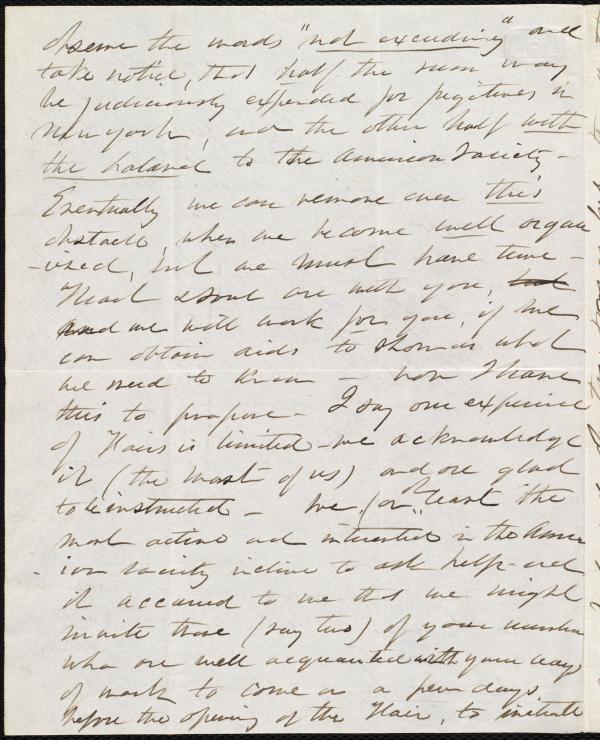 observe the words "not exceeding" and
take notice, that half the sum may
be judiciously expended for fugitives in
New York, and the other half with
the balance to the American Society -
Eventually we can remove even this
obstacle, when we become well organ
-ized, but we must have time -
Head & soul are with you,
and we will work for you, if we
can obtain aids to show us what
we need to know - now I have
this to propose - I say our experience
of Fairs is limited - we acknowledge
it (the most of us) and are glad
to be instructed - We, (or at least the
most active and interested in the Amer
ican society incline to ask help - and
it occurred to me that we might
invite those (say two) of your number
who are well acquainted with your ways
of work to come on a few days
before the opening of the Fair, to